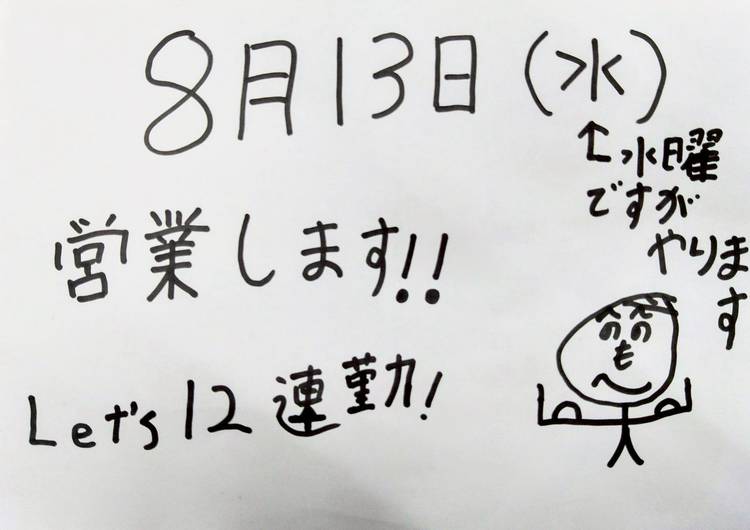 8月13日(水)
↑水曜
ですが
やります
営業します!!
Let's 12連勤!